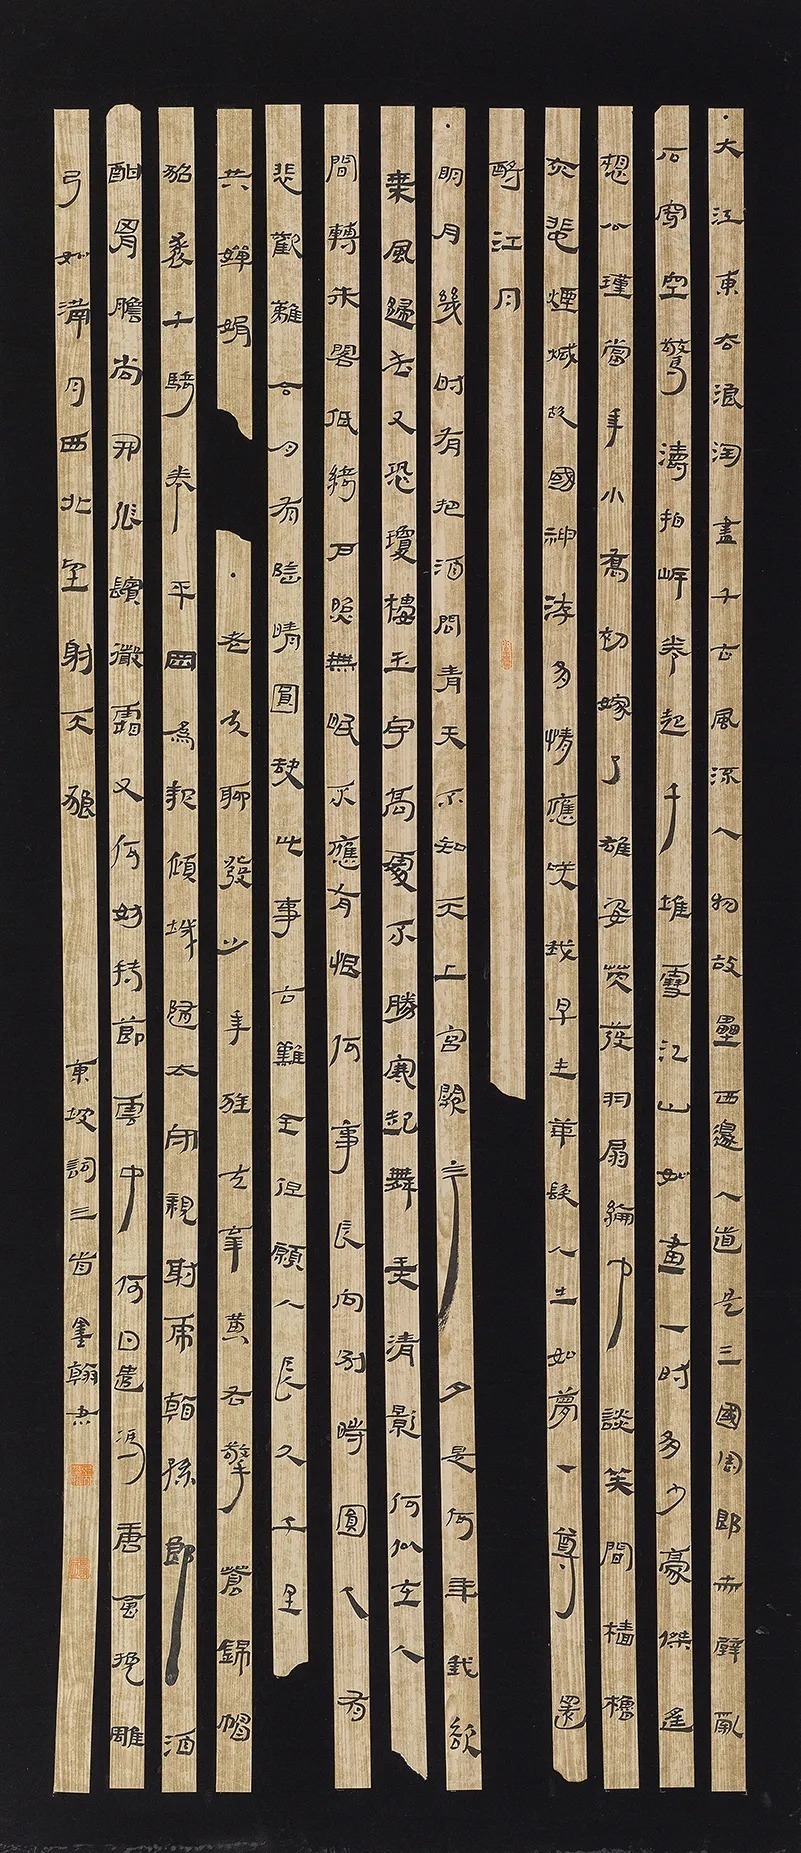 大江東去浪淘盡千古風流人物故壘西邊人道是三國周郎赤壁亂
石穿空驚濤拍岸卷起千堆雪江山如畫一時多少豪傑遙
想公瑾當年小喬初嫁了雄姿英發羽扇綸巾談笑間檣櫓
灰飛煙滅故國神游多情應笑我早生華髮人生如夢一尊還
酹江月
明月幾時有把酒問青天不知天上宮闕今夕是何年我欲
乘風歸去又恐瓊樓玉宇高處不勝寒起舞弄清影何似在人
間轉朱閣低綺戶照無眠不應有恨何事長向別時圓人有
悲歡離合月有陰晴圓缺此事古難全但願人長久千里
共嬋娟
老夫聊發少年狂左牽黃右擎蒼錦帽
貂裘千騎卷平岡為報傾城隨太守親射虎看孫郎酒
酣胸膽尚開張鬢微霜又何妨持節雲中何日遣馮唐會挽雕
弓如滿月西北望射天狼
東坡詞三首 翰書